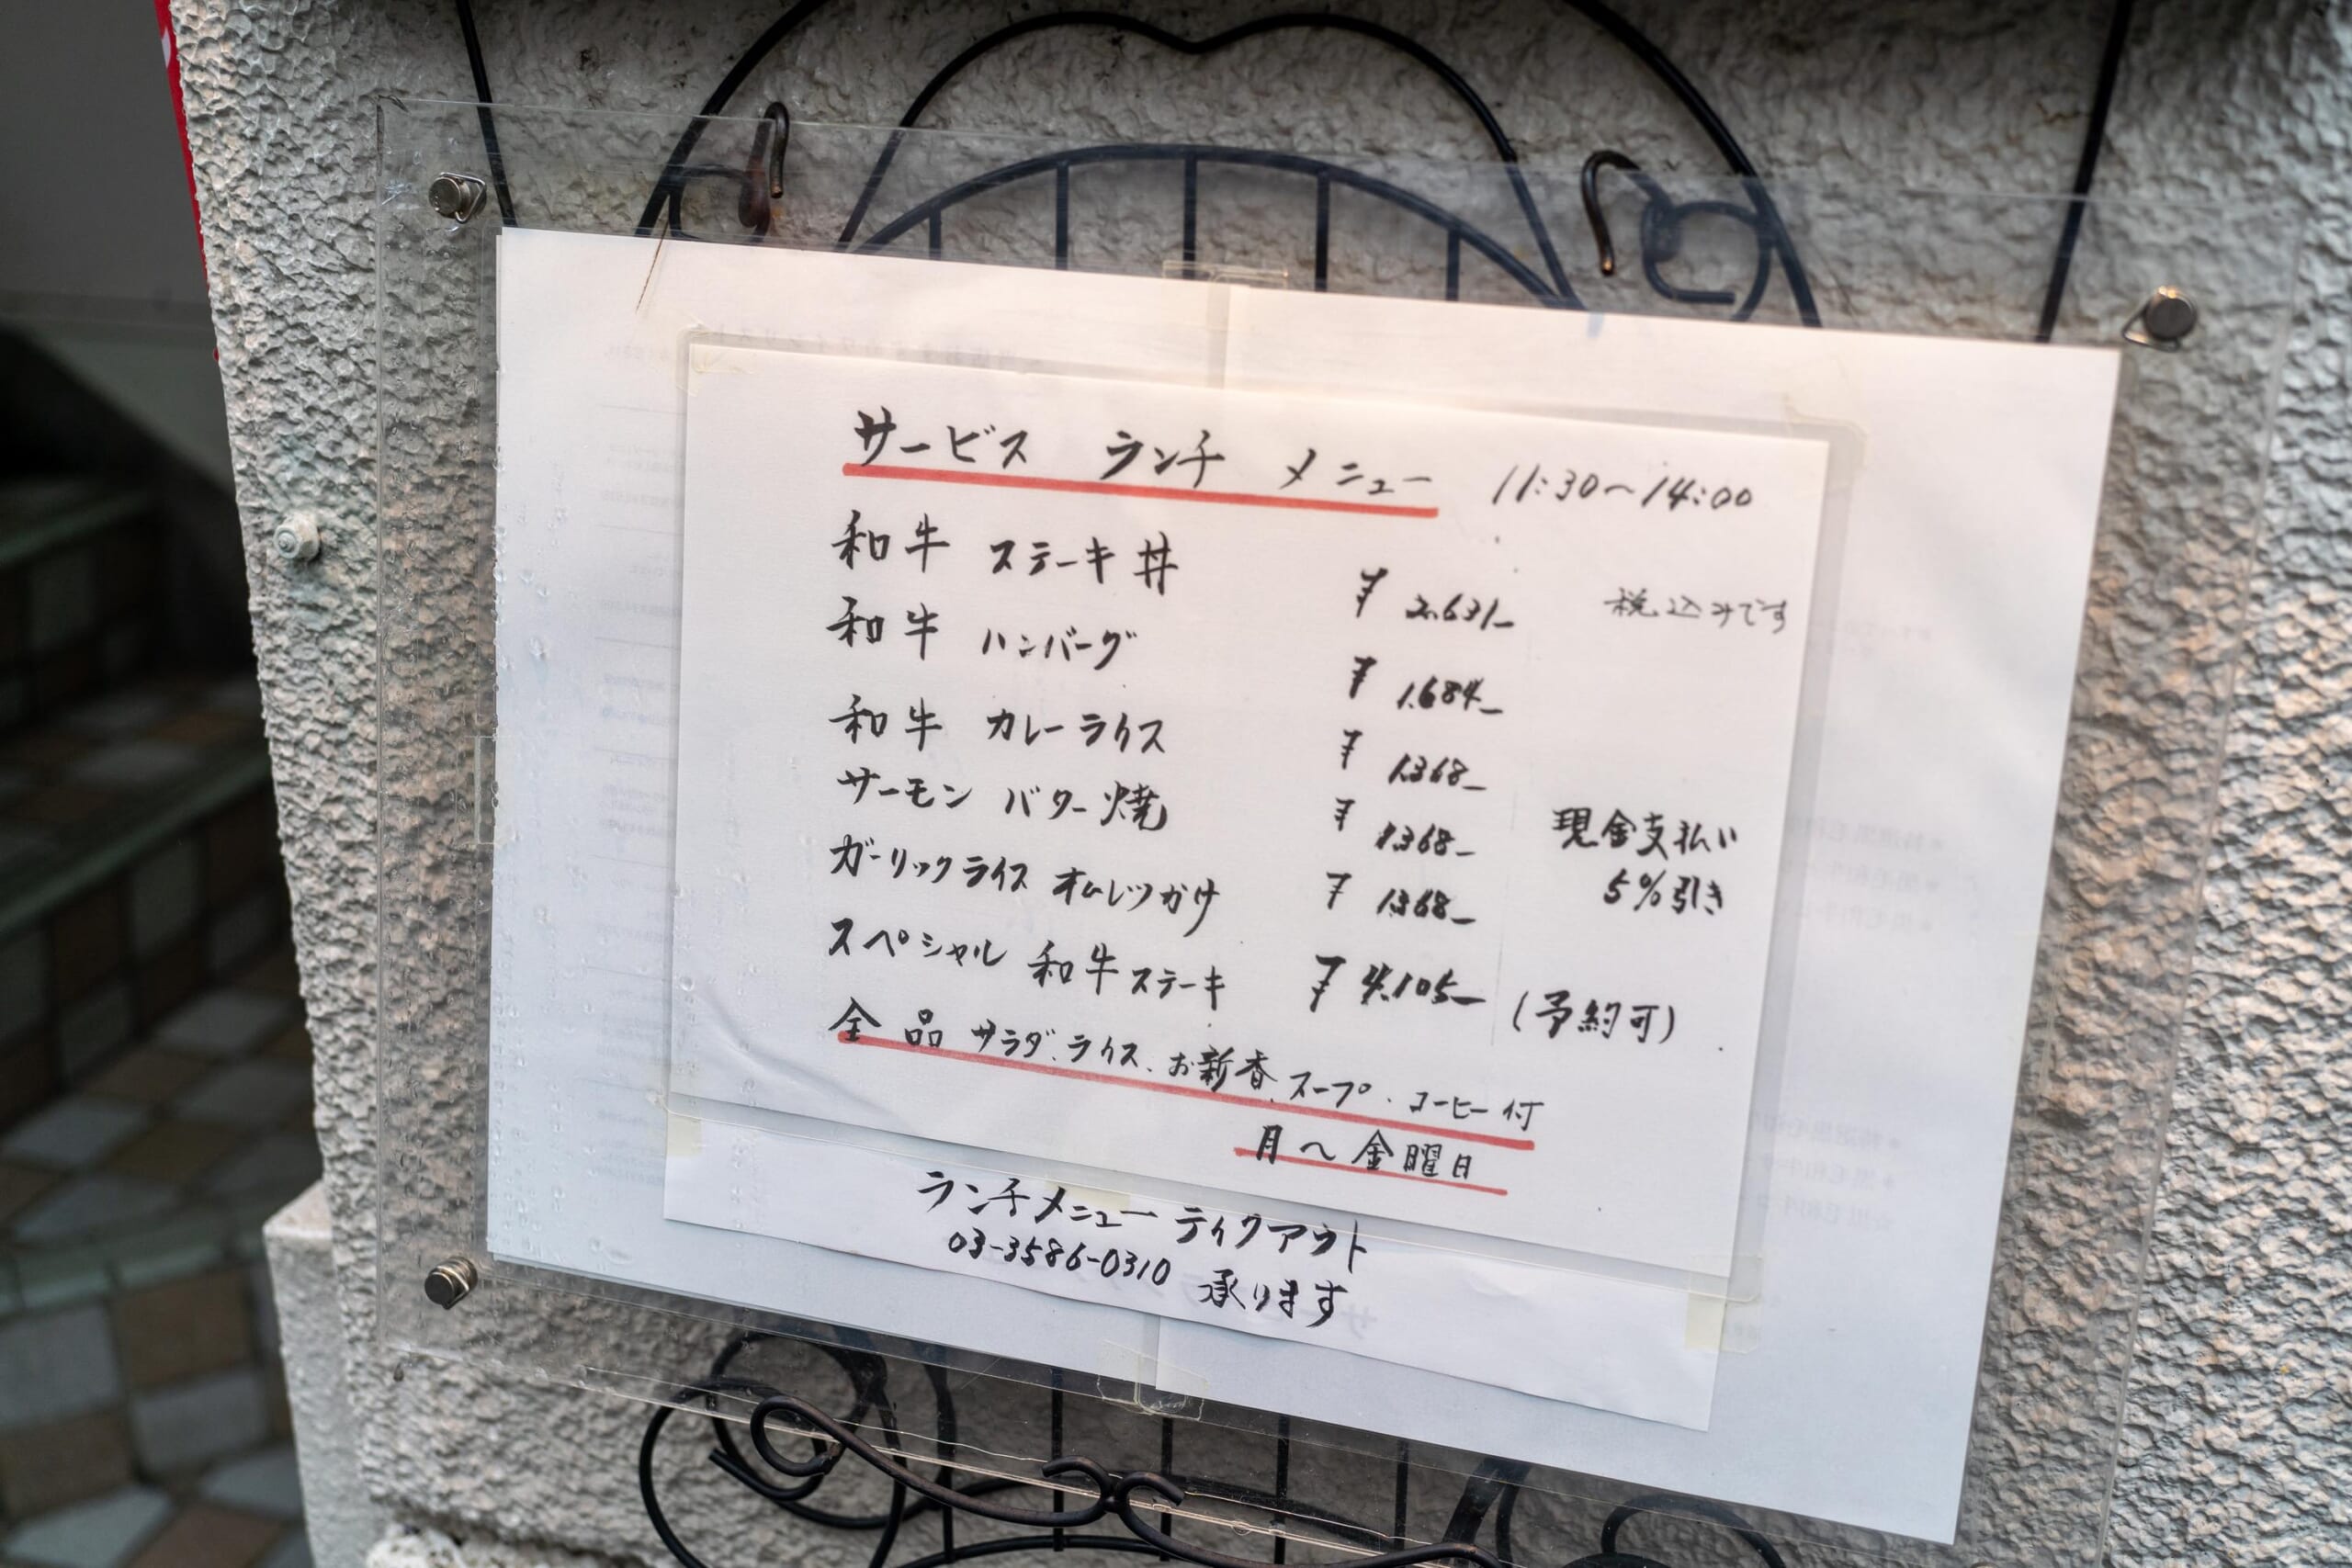 サービス ランチ メニュー 11:30〜14:00
和牛 ステーキ丼 ¥2.631- 税込みです
和牛 ハンバーグ ¥1.684-
和牛 カレーライス ¥1.368-
サーモン バター焼 ¥1.368- 現金支払い
ガーリックライス オムレツかけ ¥1.368- 5%引き
スペシャル 和牛ステーキ ¥4.105- (予約可)
全品 サラダ、ライス、お新香、スープ、コーヒー付
月〜金曜日
ランチメニュー ティクアウト
03-3586-0310 承ります